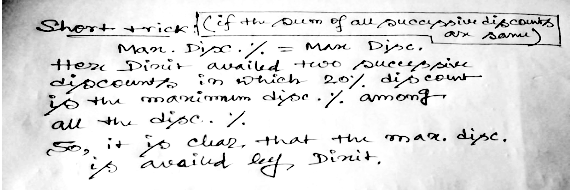 Short trick: (if the sum of all successive discounts are same)
Max. Disc. % = Max Disc.
Here Dinit availed two successive
discounts in which 20% discount
is the maximum disc. % among
all the disc.. %.
So, it is clear, that the max. disc.
is availed by, Dinit.